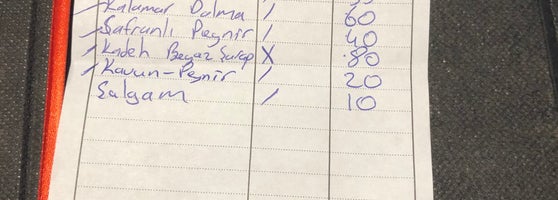 Kalamar Dolma / 60
Safranlı Peynir / 40
Kadeh Beyaz Şarap X 80
Kavun-Peynir / 20
Şalgam / 10